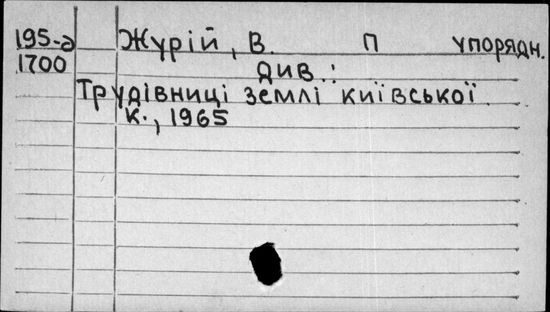 195-д Журій, В. П упорядн.
1700 див.:
Трудівниці землі київської.
К., 1965